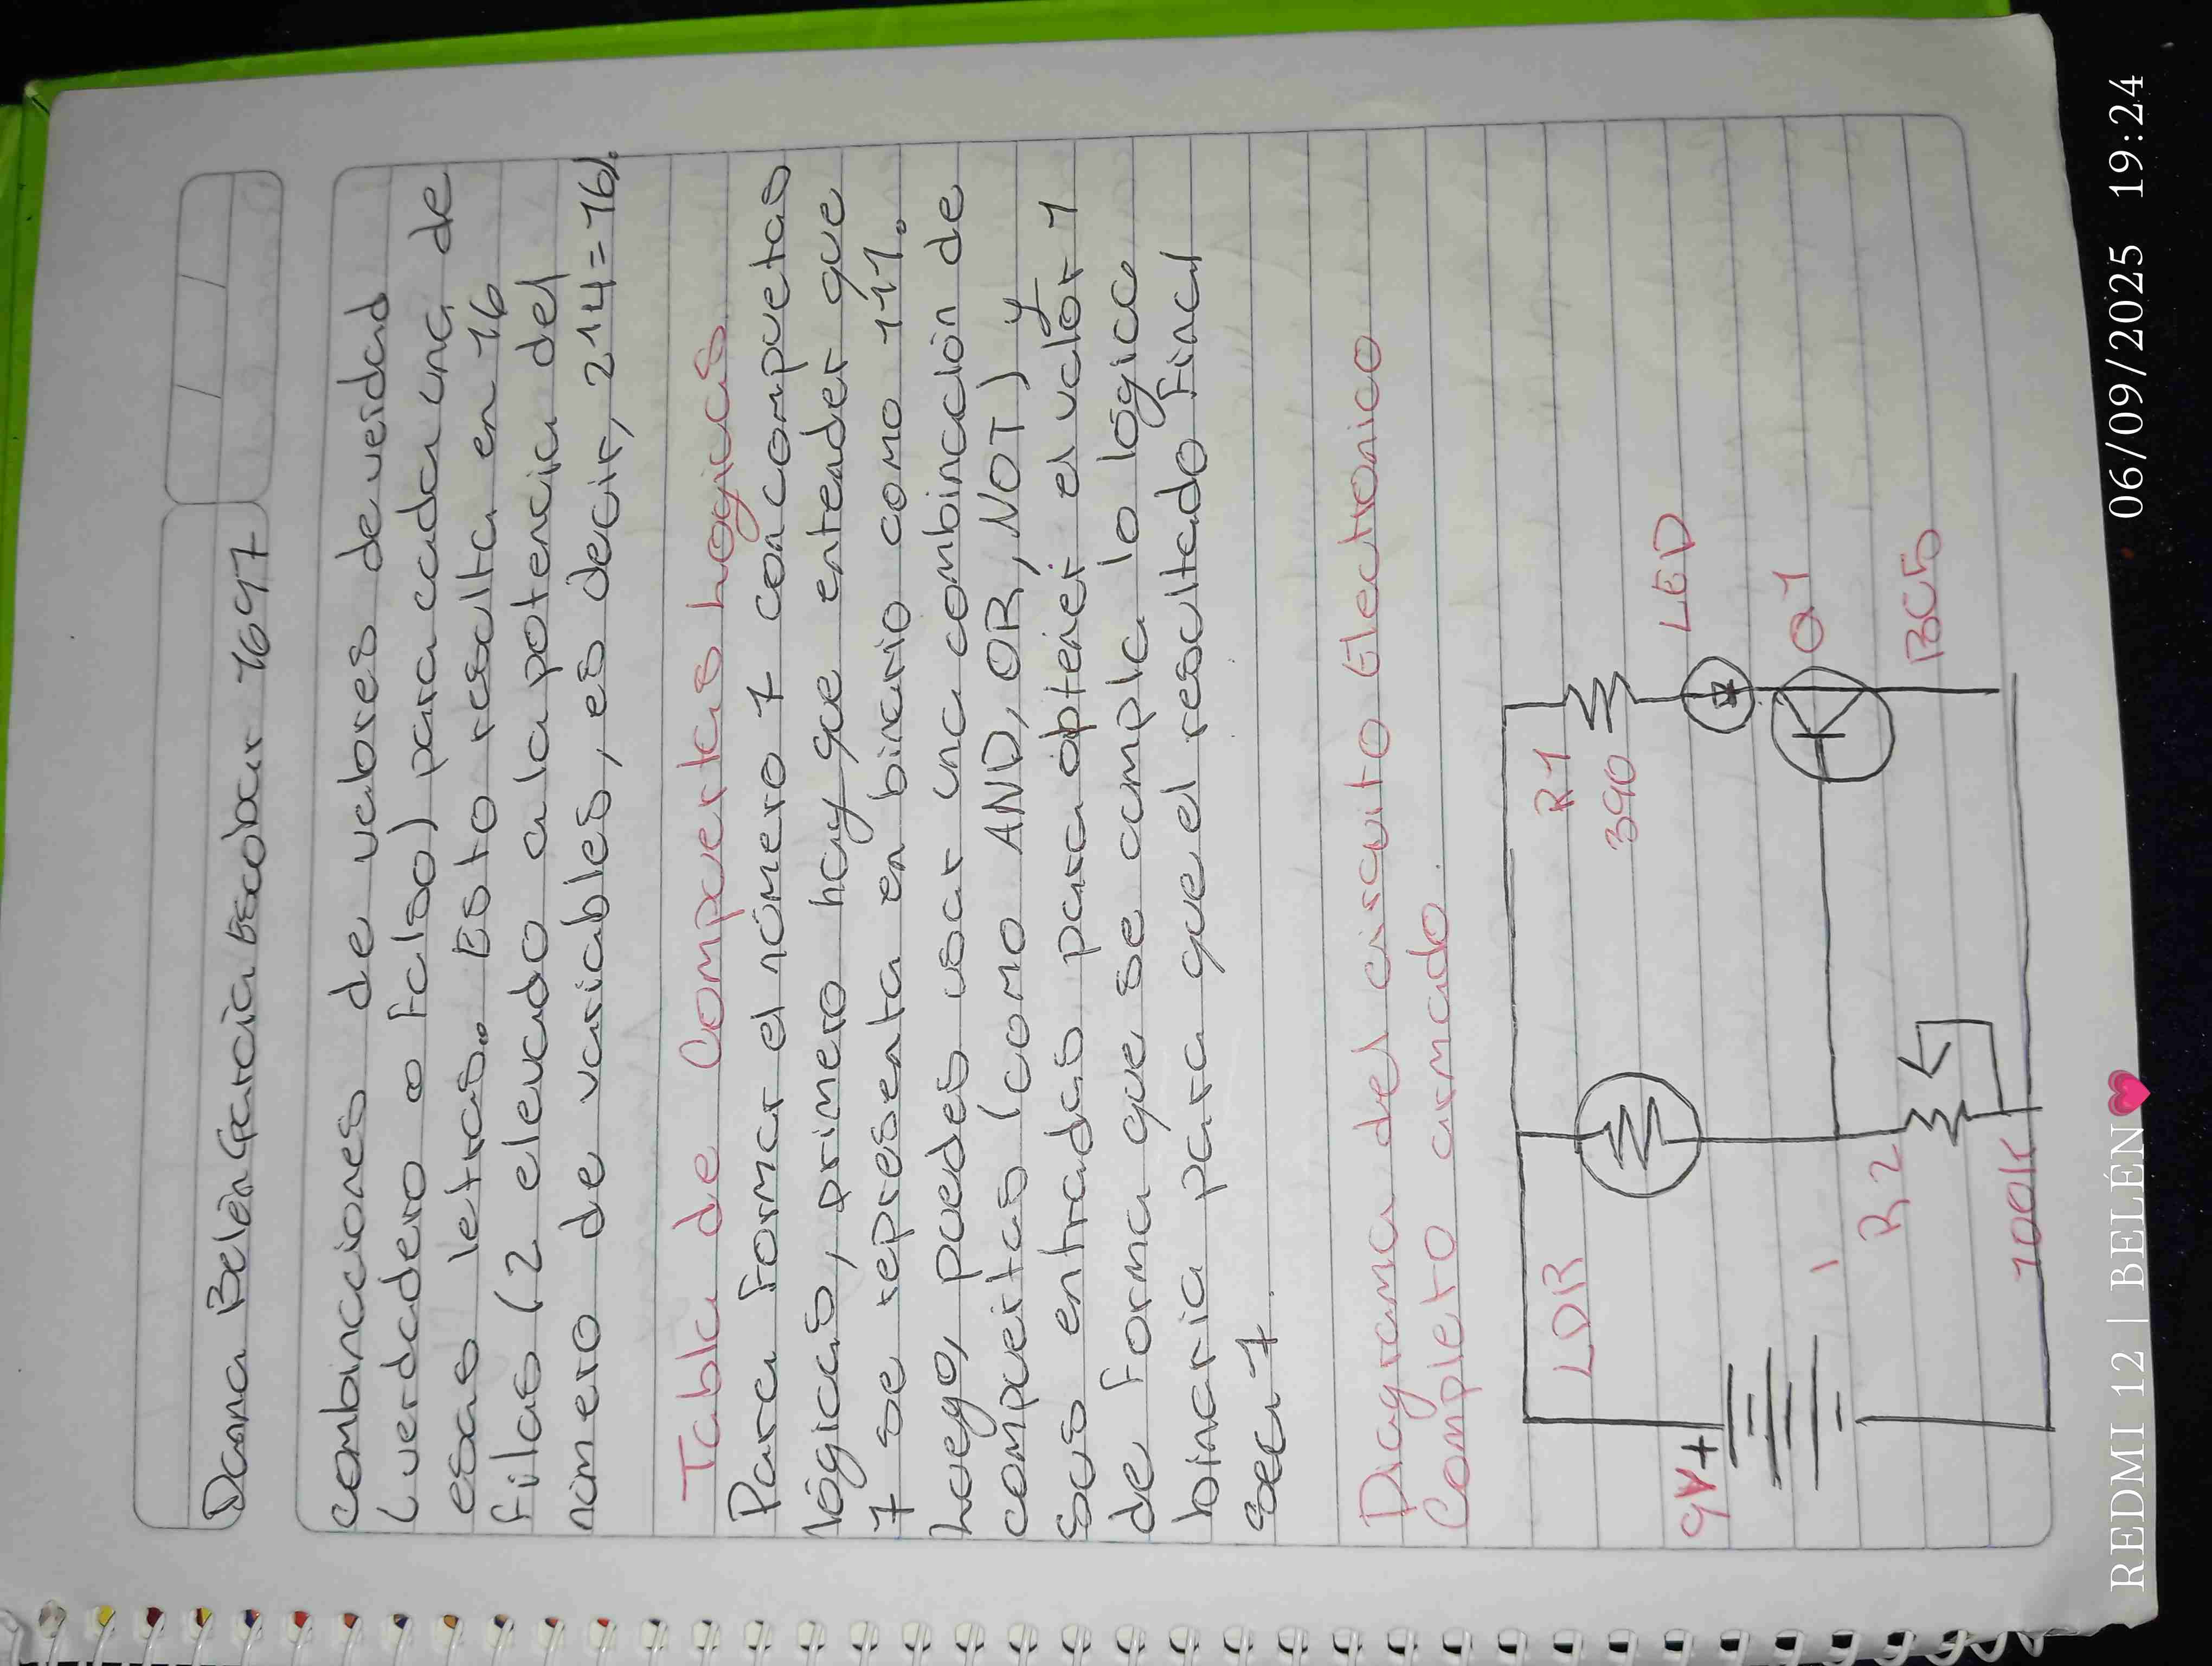 Danna Belén Garcia Escobar 1697
combinaciones de valores de veidad
(verdadero o falso) para cada una de
esas letras. Esto resulta en 16
filas (2 elevado a la potencia del
número de variables, es decir, 2^4=16).
Tabla de Compuertas Logicas.
Para formar el número 7 con compuetas
lógicas, primero hay que entender que
7 se representa en binario como 111.
Luego, puedes usar una combinación de
compuertas (como AND, OR, NOT) y
sus entradas para obtener el valor 1
de forma que se cumpla lo lógica
binaria para que el resultado final
sea 7.
Diagrama del circuito Electronico
Completo armado.
LDR
R1
390
LED
9V+
Q1
R2
BC5
100K
REDMI 12 | BELÉN💗
06/09/2025 19:24